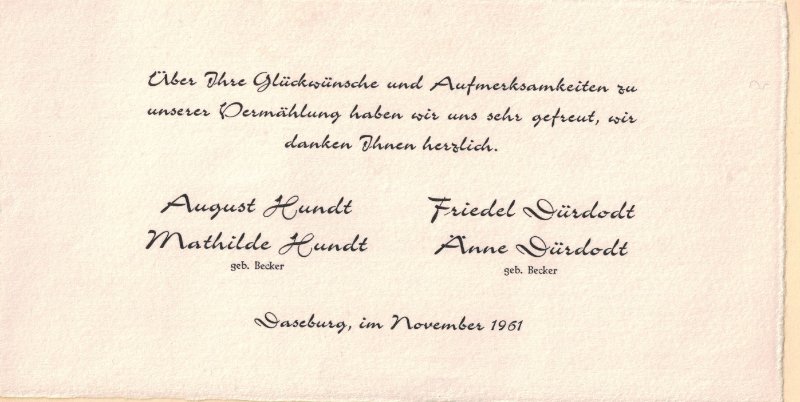 Über Ihre Glückwünsche und Aufmerksamkeiten zu
unserer Vermählung haben wir uns sehr gefreut, wir
danken Ihnen herzlich.
August Hundt
Mathilde Hundt
geb. Becker
Friedel Dürdodt
Änne Dürdodt
geb. Becker
Daseburg, im November 1961